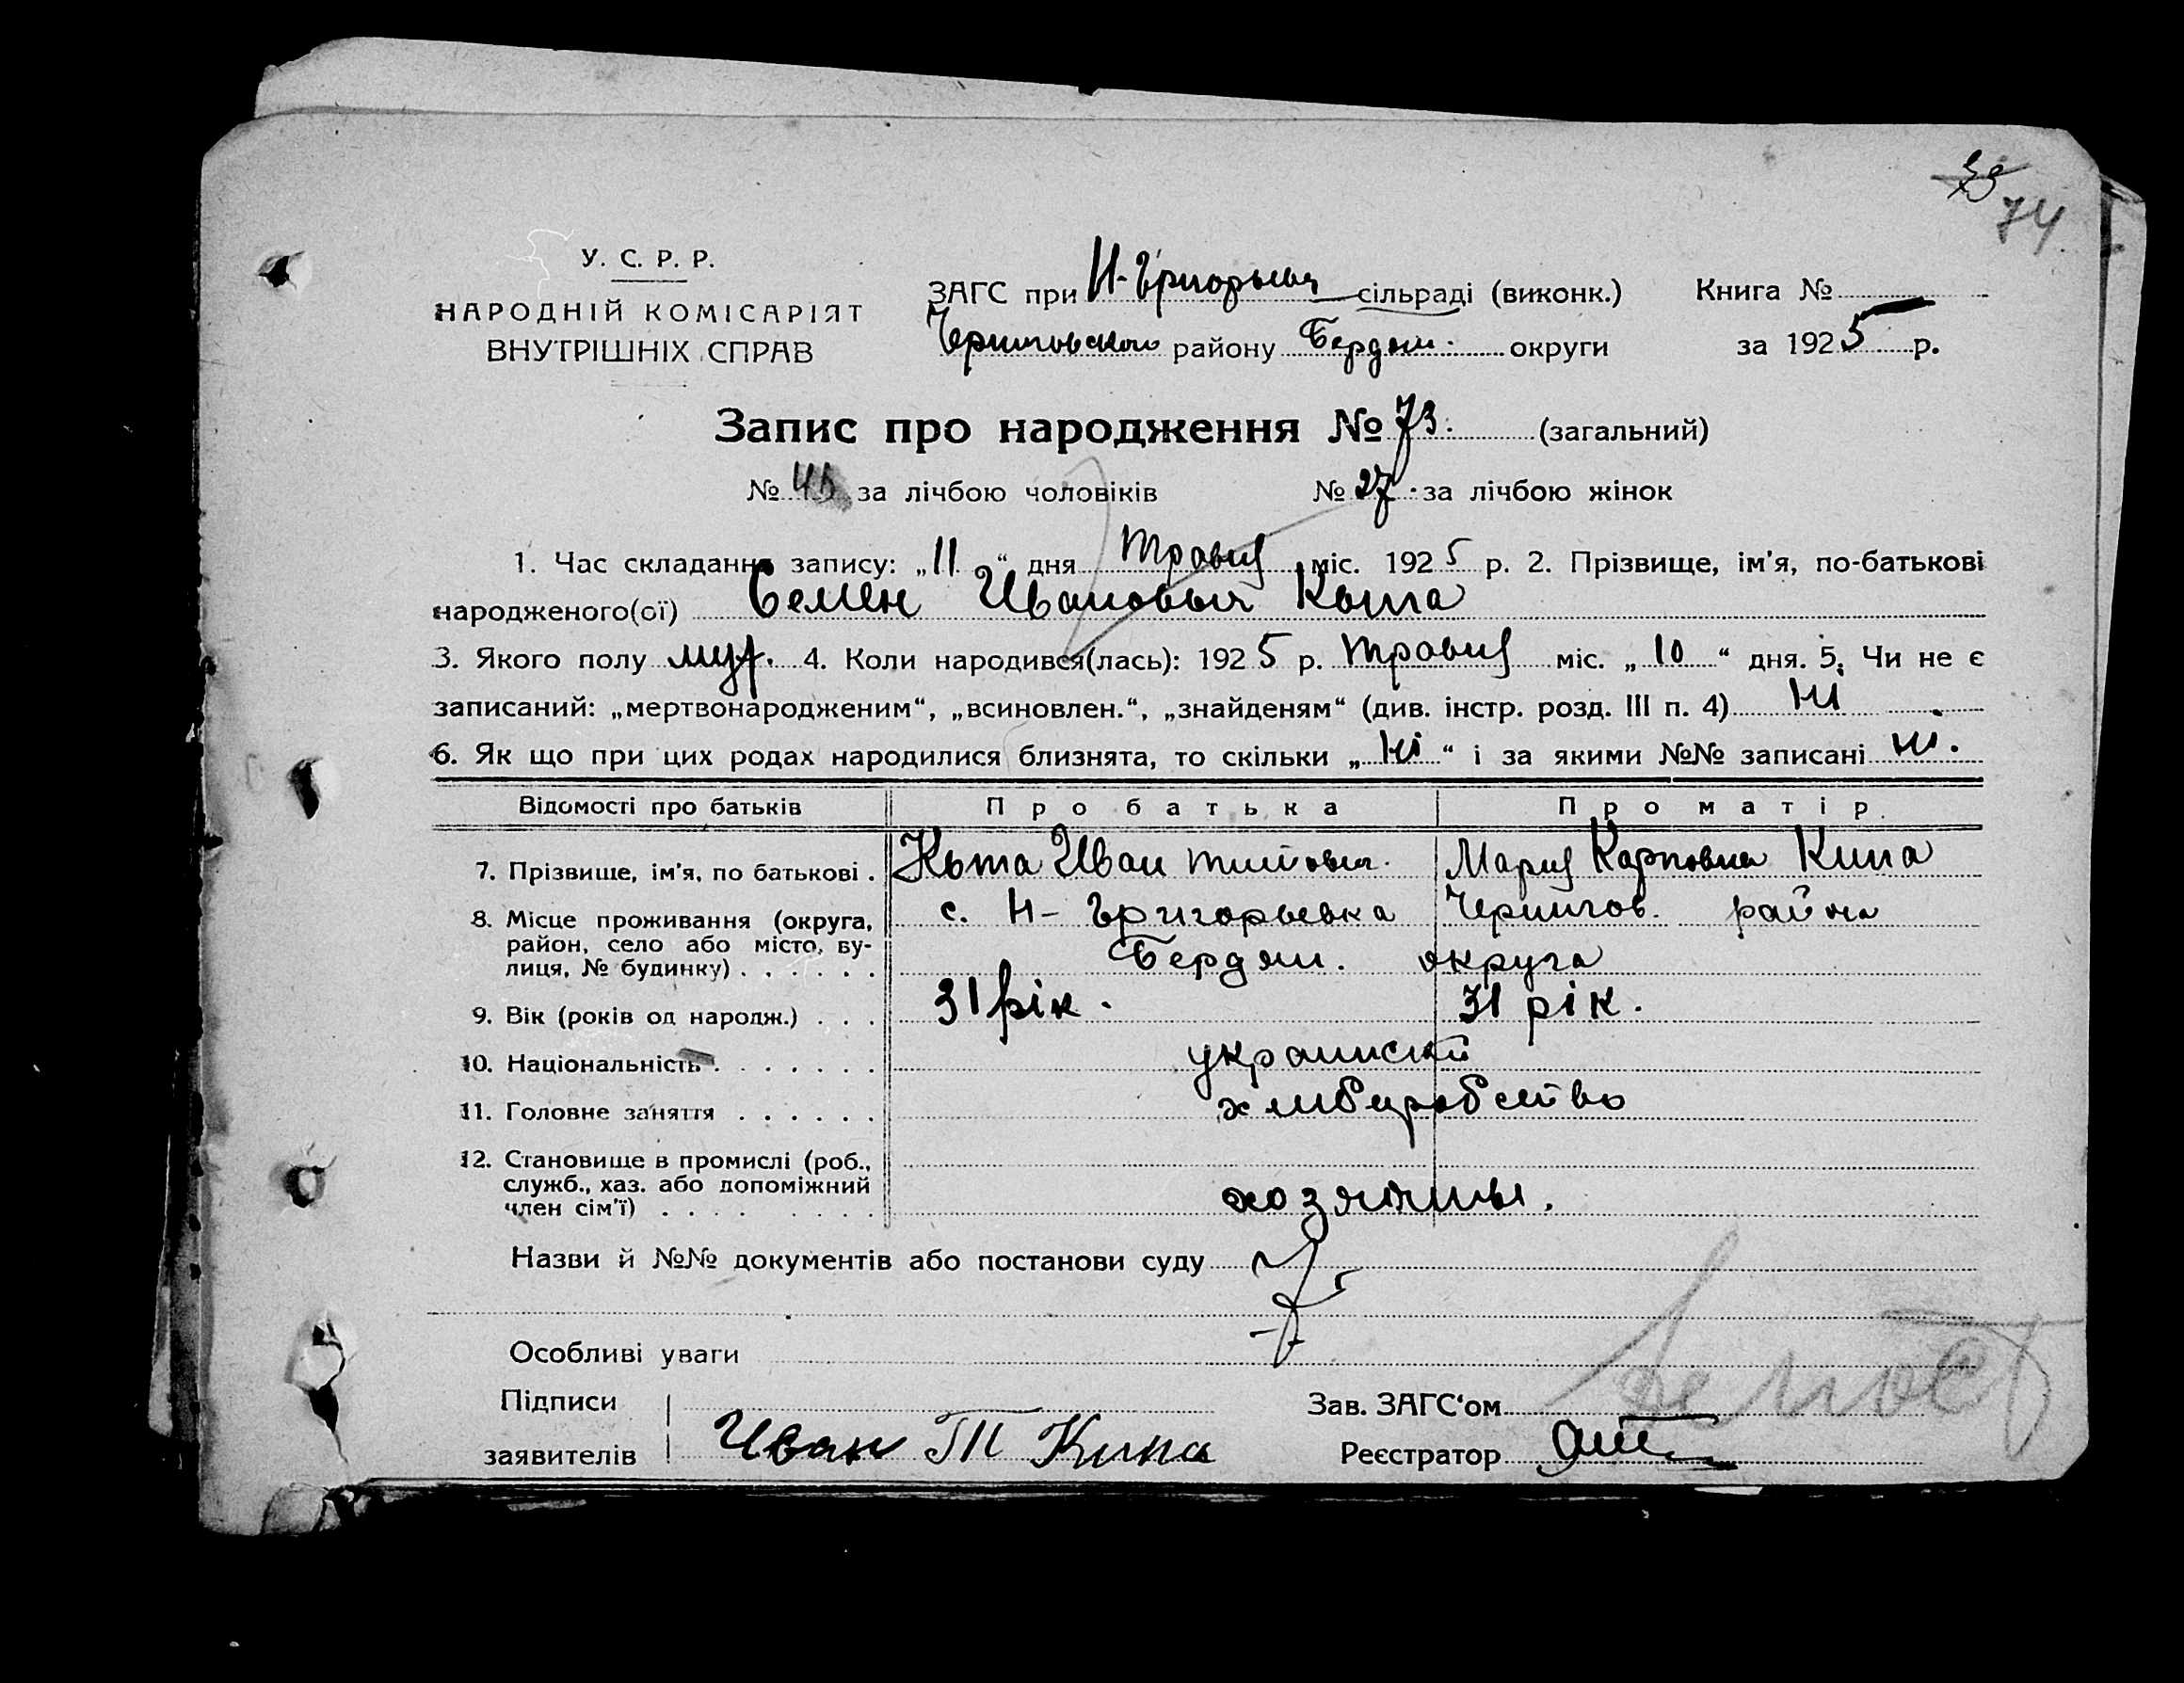 74
У. С. Р. Р.
НАРОДНІЙ КОМІСАРІЯТ
ВНУТРІШНІХ СПРАВ
ЗАГС при Н-Григорьевс сільраді (виконк.) Книга №
Черниговского району Бердян. округи за 1925 р.
Запис про народження № 73. (загальний)
№ за лічбою чоловіків № 27. за лічбою жінок
1. Час складання запису: „11“ дня травня міс. 1925 р. 2. Прізвище, ім'я, по-батькові
народженого(ої) Семен Иванович
3. Якого полу муж. 4. Коли народився(лась): 1925 р. травня міс. „10“ дня. 5. Чи не є
записаний: „мертвонародженим“, „всиновлен.“, „знайденям“ (див. інстр. розд. III п. 4) ні
6. Як що при цих родах народилися близнята, то скільки „ні“ і за якими №№ записані ні.
Відомості про батьків Про батька Про матір
7. Прізвище, ім'я, по батькові . Иван Марія Карповна Кипа
8. Місце проживання (округа, район, село або місто, вулиця, № будинку) . . . . . . с. Н-Григорьевка Чернигов. район
Бердян. округа
9. Вік (років од народж.) . . . 31 рік. 31 рік.
10. Національність . . . . . . . украинский
11. Головне заняття . . . . . . хлиборобство
12. Становище в промислі (роб., служб., хаз. або допоміжний член сім'ї) . . . . . . . . хозяины.
Назви й №№ документів або постанови суду
Особливі уваги
Підписи Зав. ЗАГС'ом
заявителів Иван Т Кипа Реєстратор